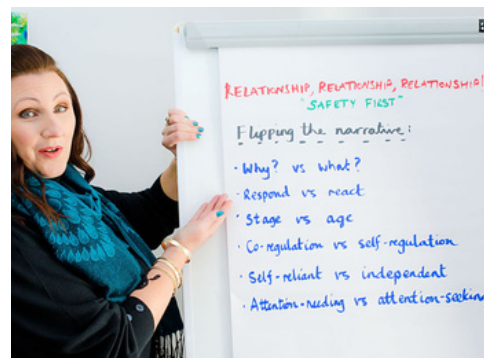 RELATIONSHIP, RELATIONSHIP, RELATIONSHIP!
"SAFETY FIRST"
Flipping the narrative:
· Why? vs what?
· Respond vs react
· Stage vs age
· Co-regulation vs self-regulation
· Self-reliant vs independent
· Attention-needing vs attention-seeking